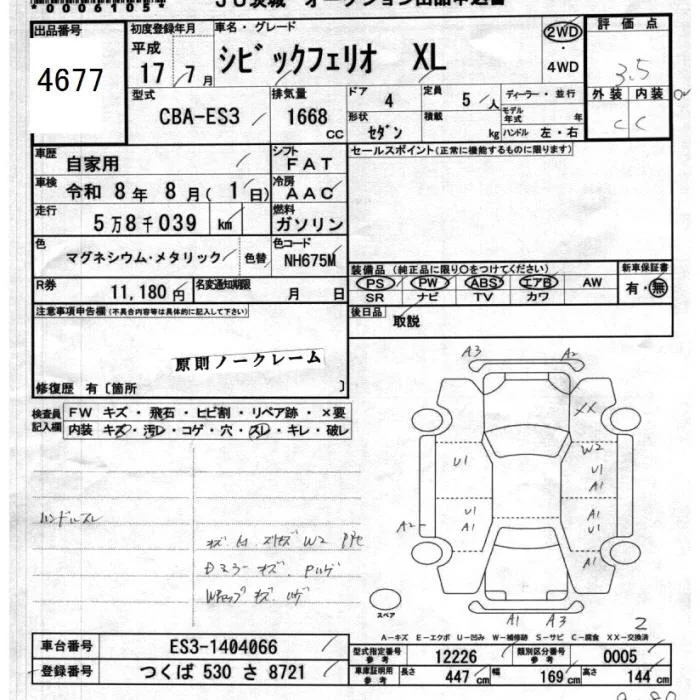 *0006105*
JU茨城 オークション出品申込書
出品番号
4677
初度登録年月
平成
17 7月
車名・グレード
シビックフェリオ XL
2WD
・
4WD
評価点
3.5
外装 内装
C C
型式
CBA-ES3
排気量
1668
CC
ドア 4
定員 5人
ディーラー・並行
モデル
年式 年
形状 セダン
積載 kg
ハンドル 左・右
車歴 自家用
シフト FAT
セールスポイント(正常に機能するものに限ります)
車検 令和8年8月(1日)
冷房 AAC
走行 5万8千039 km
燃料 ガソリン
色 マグネシウム・メタリック 色替
色コード NH675M
装備品(純正品に限り○をつけてください)
新車保証書
PS PW ABS エアB AW
有・無
SR ナビ TV カワ
R券 11,180円
名変通知期限 月 日
後日品 取説
注意事項申告欄(不具合内容等は具体的に記入して下さい)
原則ノークレーム
修復歴 有〔箇所 〕
検査員
記入欄
FW キズ・飛石・ヒビ割・リペア跡・×要
内装 キズ・汚レ・コゲ・穴・スレ・キレ・破レ
A3 A2
XX
U1 W2
U1
A1
U1 A1
A1 U1
A2
A1
ハンドルスレ
スペア
A1 A3
2
A-キズ E-エクボ U-凹み W-補修跡 S-サビ C-腐食 XX-交換済
車台番号 ES3-1404066
型式指定番号
参考 12226
類別区分番号
参考 0005
登録番号 つくば 530 さ 8721
車庫証明用
参考 長さ 447cm 幅 169cm 高さ 144cm